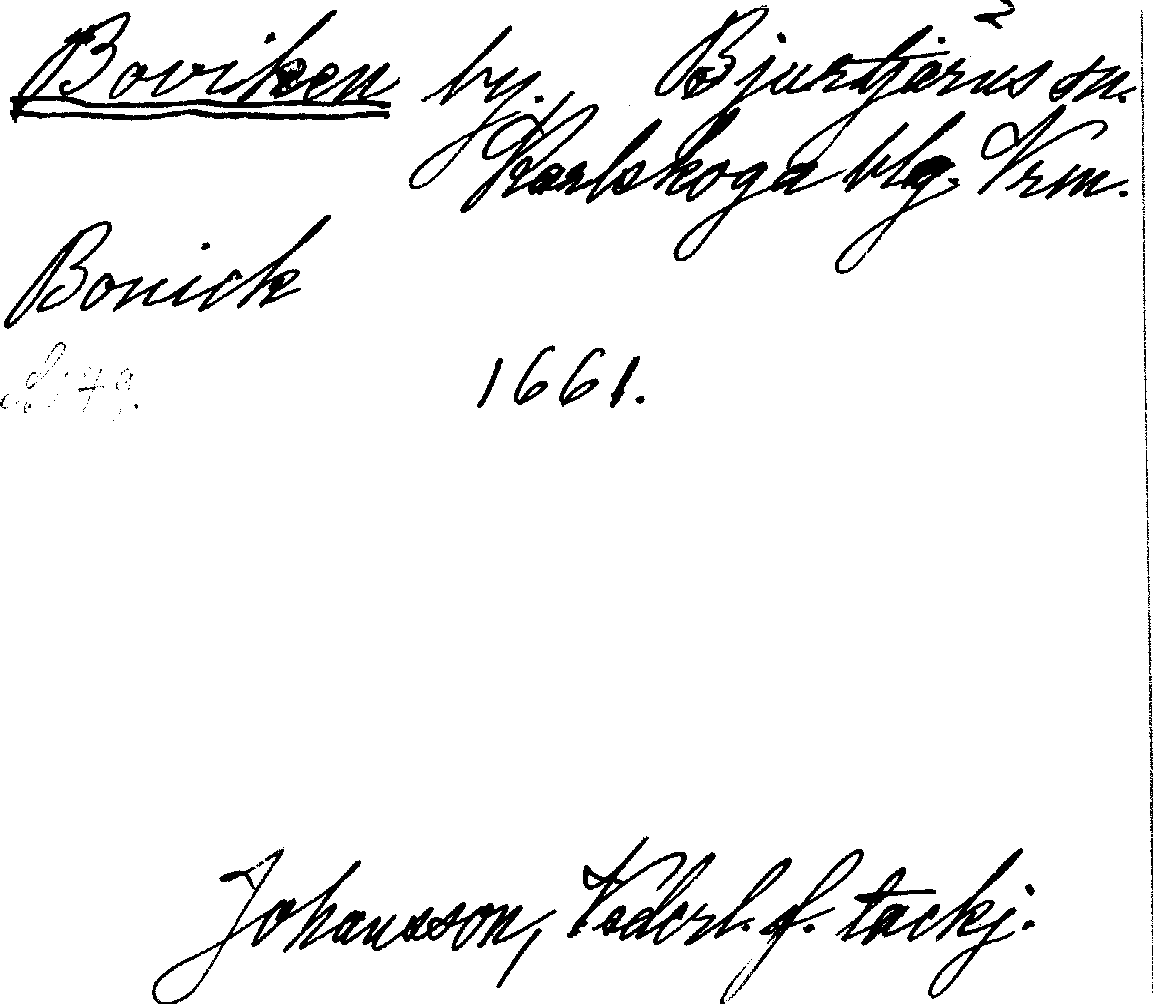 Boviken by. Bjurtjärns sn.
Karlskoga blg. Vrm.
Bonick
1661.
Johansson, Vederl. f. tackj.